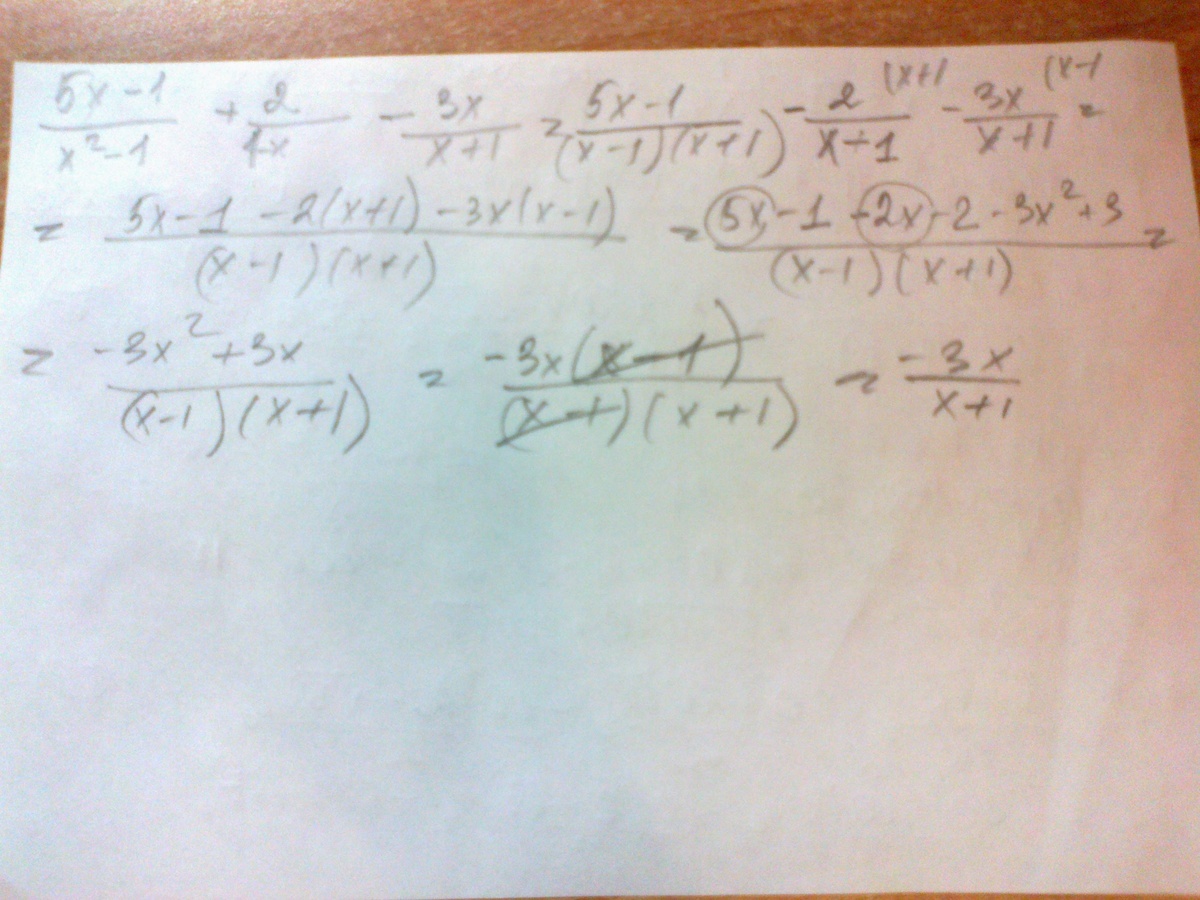 (5x-1)/(x²-1) + 2/(1-x) - 3x/(x+1) = (5x-1)/((x-1)(x+1)) - 2/(x-1) (x+1 - 3x/(x+1) (x-1 =
= (5x-1 -2(x+1) -3x(x-1))/((x-1)(x+1)) = (5x -1 -2x -2 -3x²+3)/((x-1)(x+1)) =
= (-3x²+3x)/((x-1)(x+1)) = (-3x(x-1))/((x-1)(x+1)) = (-3x)/(x+1)